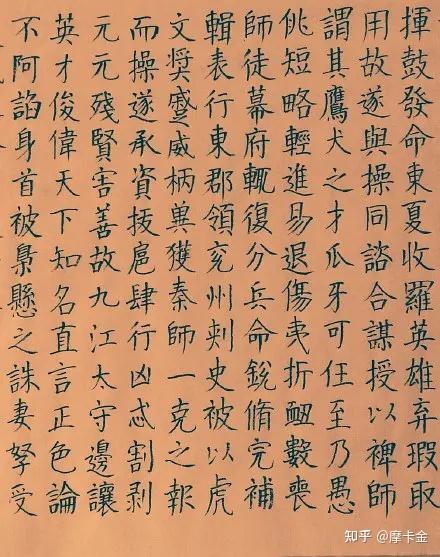 揮鼓發命東夏收羅英雄弃瑕取
用故遂與操同諮合謀授以裨師
謂其鷹犬之才爪牙可任至乃愚
佻短略輕進易退傷夷折衂數喪
師徒幕府輒復分兵命銳脩完補
輯表行東郡領兖州刾史被以虎
文奬蹙威柄兾獲秦師一克之報
而操遂承資拔扈肆行凶忒割剥
元元殘賢害善故九江太守邊讓
英才俊偉天下知名直言正色論
不阿諂身首被梟懸之誅妻孥受
知乎 @摩卡金